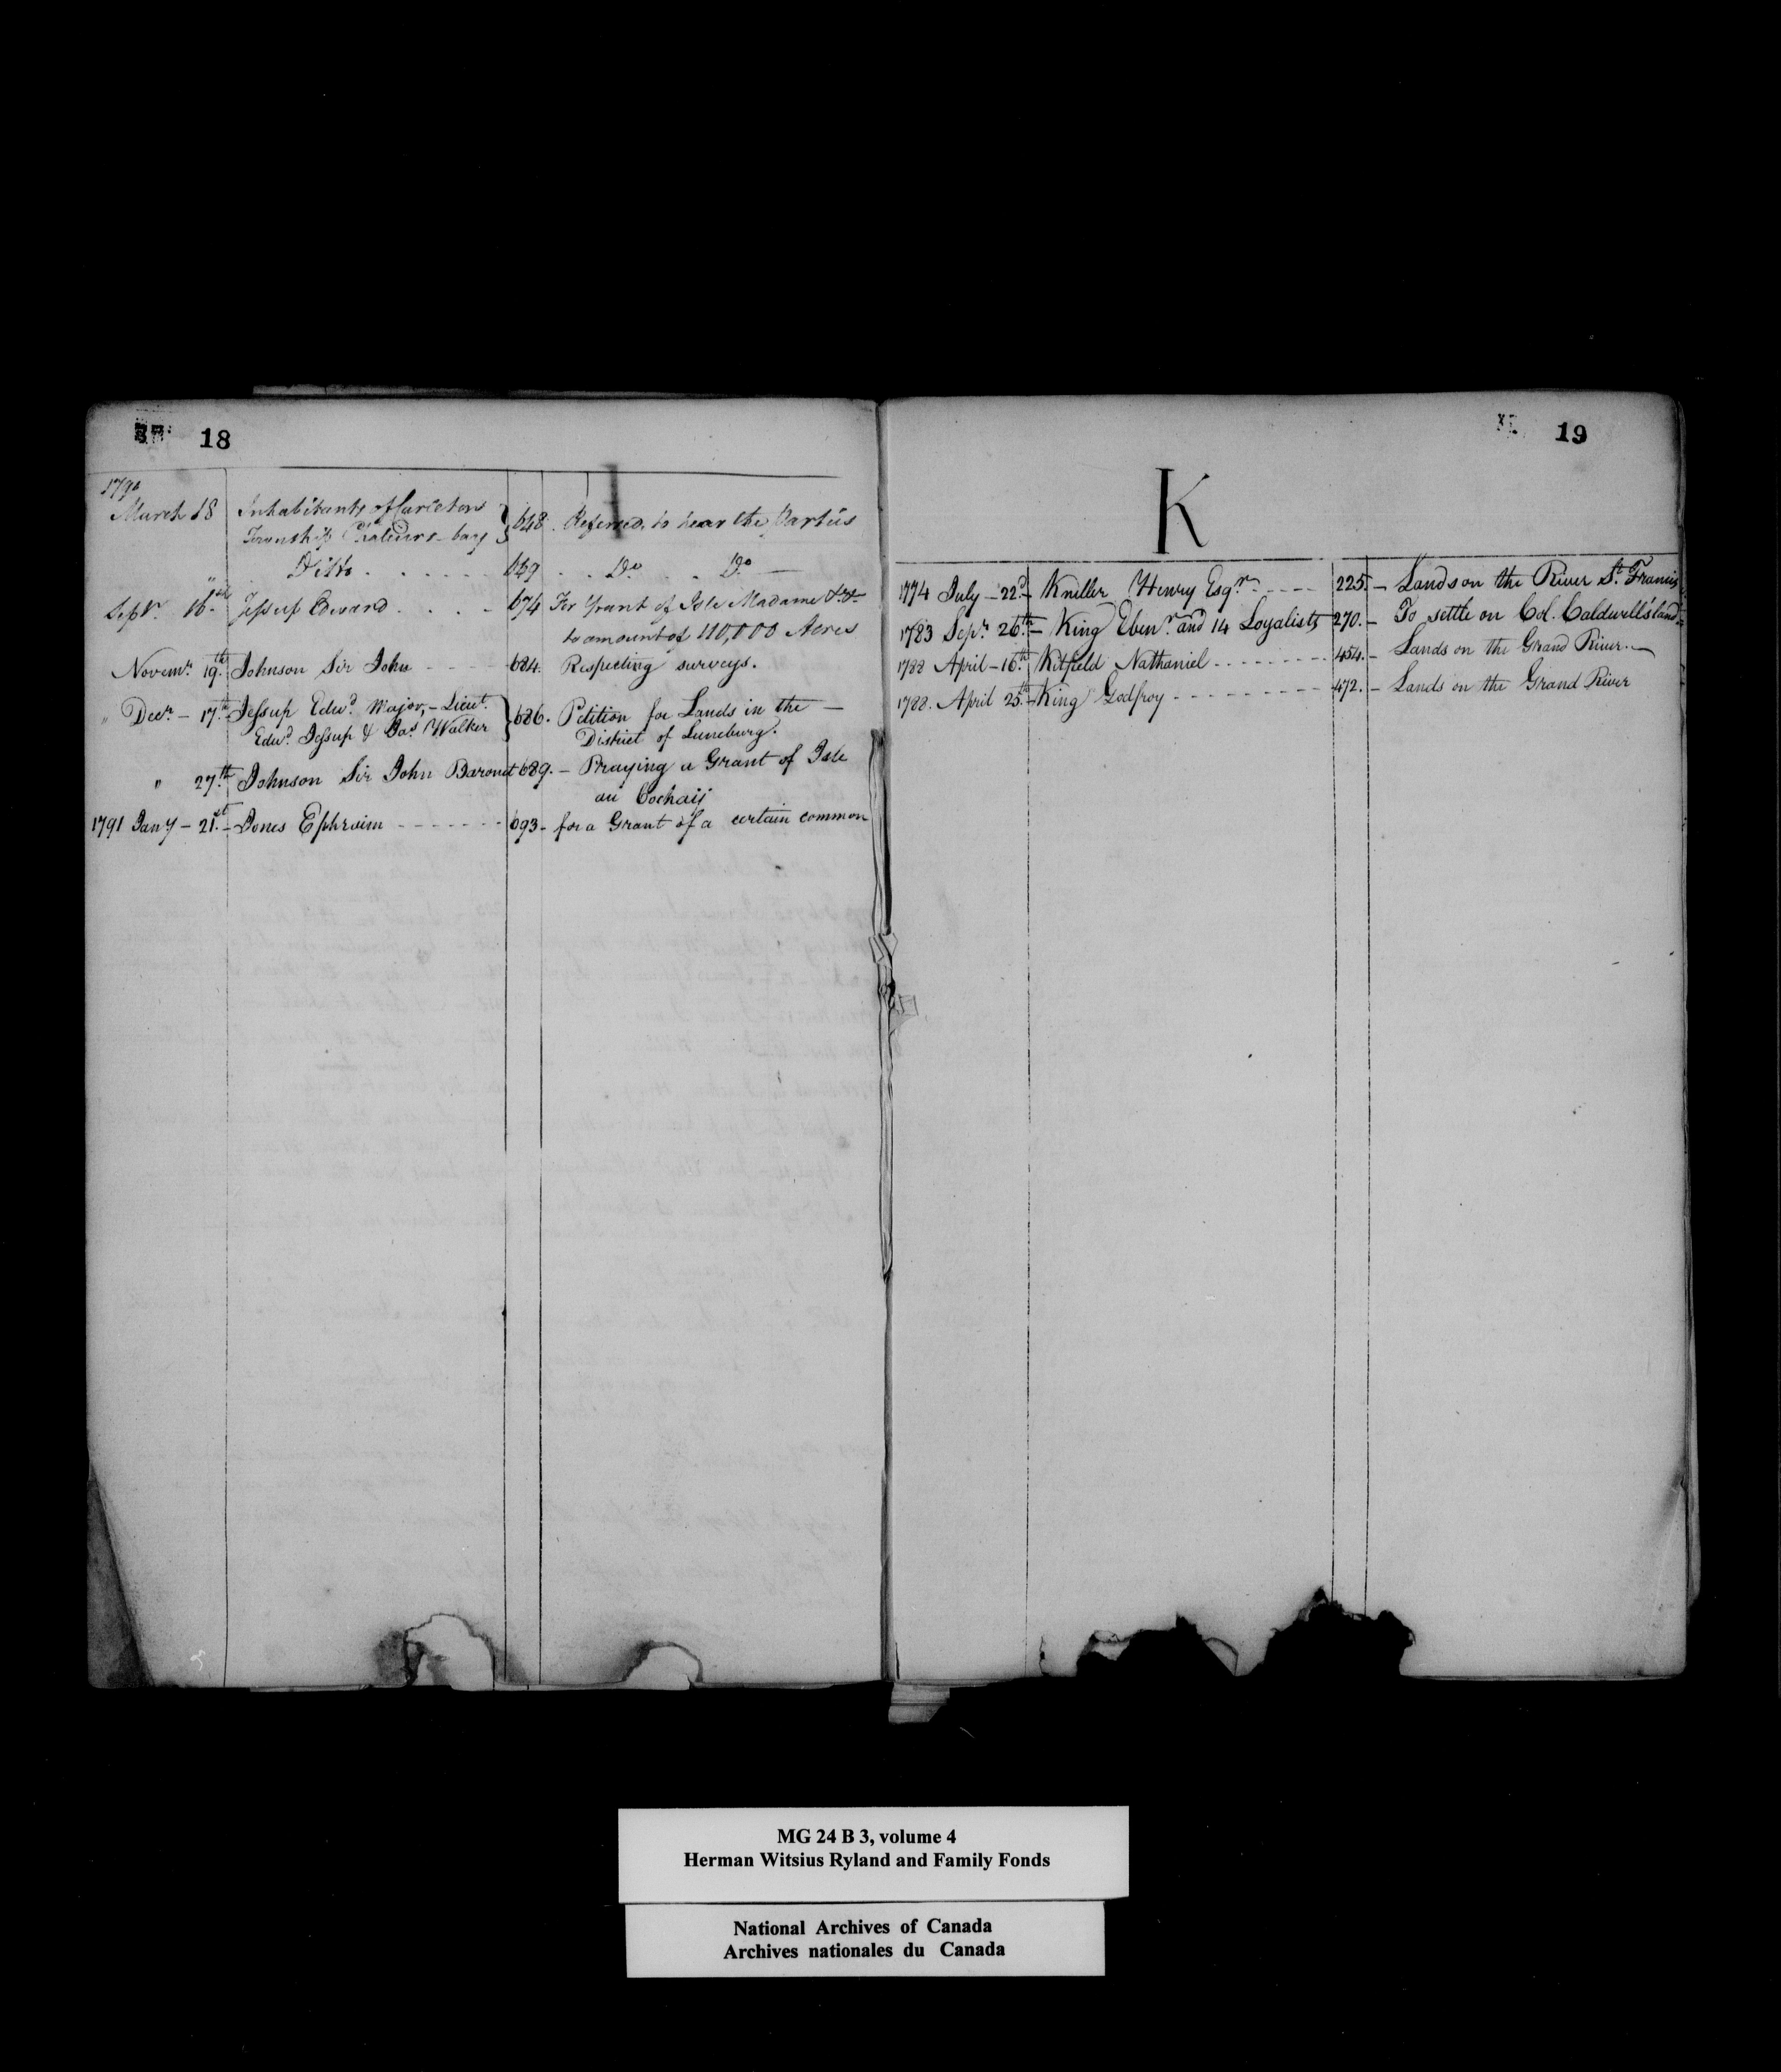 18
I
1790
March 18 Inhabitants of Carleton
Township Chaleurs-bay } 648. Referred to hear the Parties
" Ditto . . . . . . 649 . . Do . . Do —
Sepr. 16th Jessup Edward . . . . - 674 For Grant of Isle Madame &c &c
to amount of 110,000 Acres
Novemr. 19th Johnson Sir John - - - - 684. Respecting surveys.
" Decr. - 17th Jessup Edwd. Major, - Lieut.
Edwd. Jessup & Jas Walker } 686. Petition for Lands in the —
District of Luneburg.
" 27th Johnson Sir John Baronet 689. - Praying a Grant of Isle
au Cochon
1791 Jany - 21st - Jones Ephraim - - - - - - - 693 - for a Grant of a certain common
19
K
1774 July - 22d - Kniller Henry Esqr. - - - - 225. - Lands on the River St. Francis
1783 Sepr. 26th - King Ebenr. and 14 Loyalists 270. - To settle on Col. Caldwell's land
1788 April - 16th Kitfield Nathaniel - - - - - - - - 454. - Lands on the Grand River. —
1788. April 25th - King Godfroy - - - - - - - - - 472. - Lands on the Grand River
MG 24 B 3, volume 4
Herman Witsius Ryland and Family Fonds
National Archives of Canada
Archives nationales du Canada